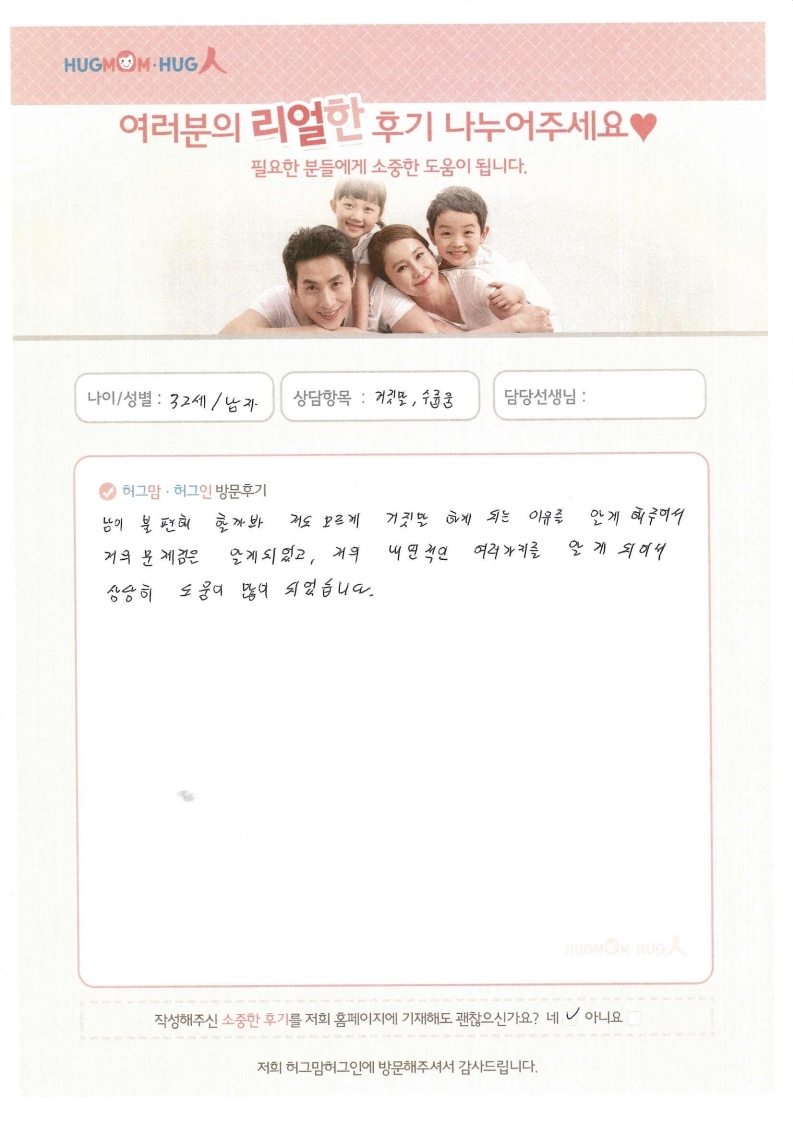 HUGMOM·HUG人
여러분의 리얼한 후기 나누어주세요♥
필요한 분들에게 소중한 도움이 됩니다.
나이/성별 : 32세/남자 상담항목 : 거짓말, 수줍움 담당선생님 :
허그맘·허그인 방문후기
남이 불편해 할까봐 저도 모르게 거짓말 하게 되는 이유를 알게 해주어서
저의 문제점은 알게되었고, 저의 내면적인 여러가지를 알 게 되어서
상당히 도움이 많이 되었습니다.
HUGMOM·HUG人
작성해주신 소중한 후기를 저희 홈페이지에 기재해도 괜찮으신가요? 네 ✓ 아니요
저희 허그맘허그인에 방문해주셔서 감사드립니다.